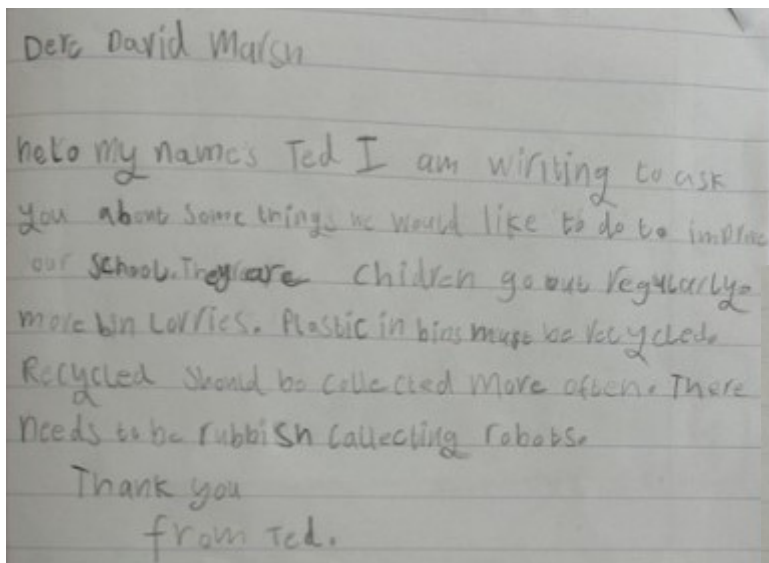 Dere David Marsh
helo my names Ted I am wiriting to ask
you about some things we would like to do to improve
our school. They are chidren go out regularly.
more bin Lorries. Plastic in bins must be recycled.
Recycled should be collected more often. There
needs to be rubbish collecting robots.
Thank you
from Ted.